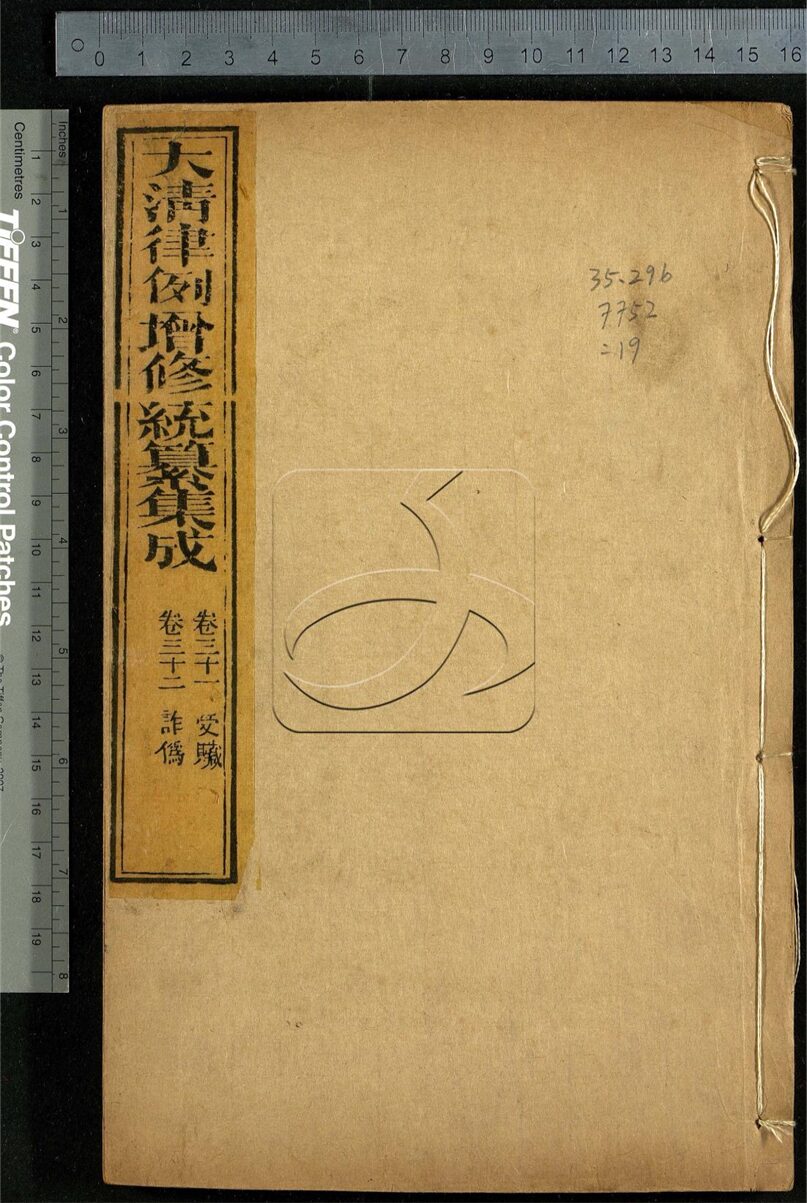 0 1 2 3 4 5 6 7 8 9 10 11 12 13 14 15 16
Inches
1 2 3 4 5 6 7 8
Centimetres
1 2 3 4 5 6 7 8 9 10 11 12 13 14 15 16 17 18 19
TIFFEN® Color Control Patches
大淸律例增修統纂集成
卷三十一 受贓
卷三十二 詐僞
35.296
7752
=19